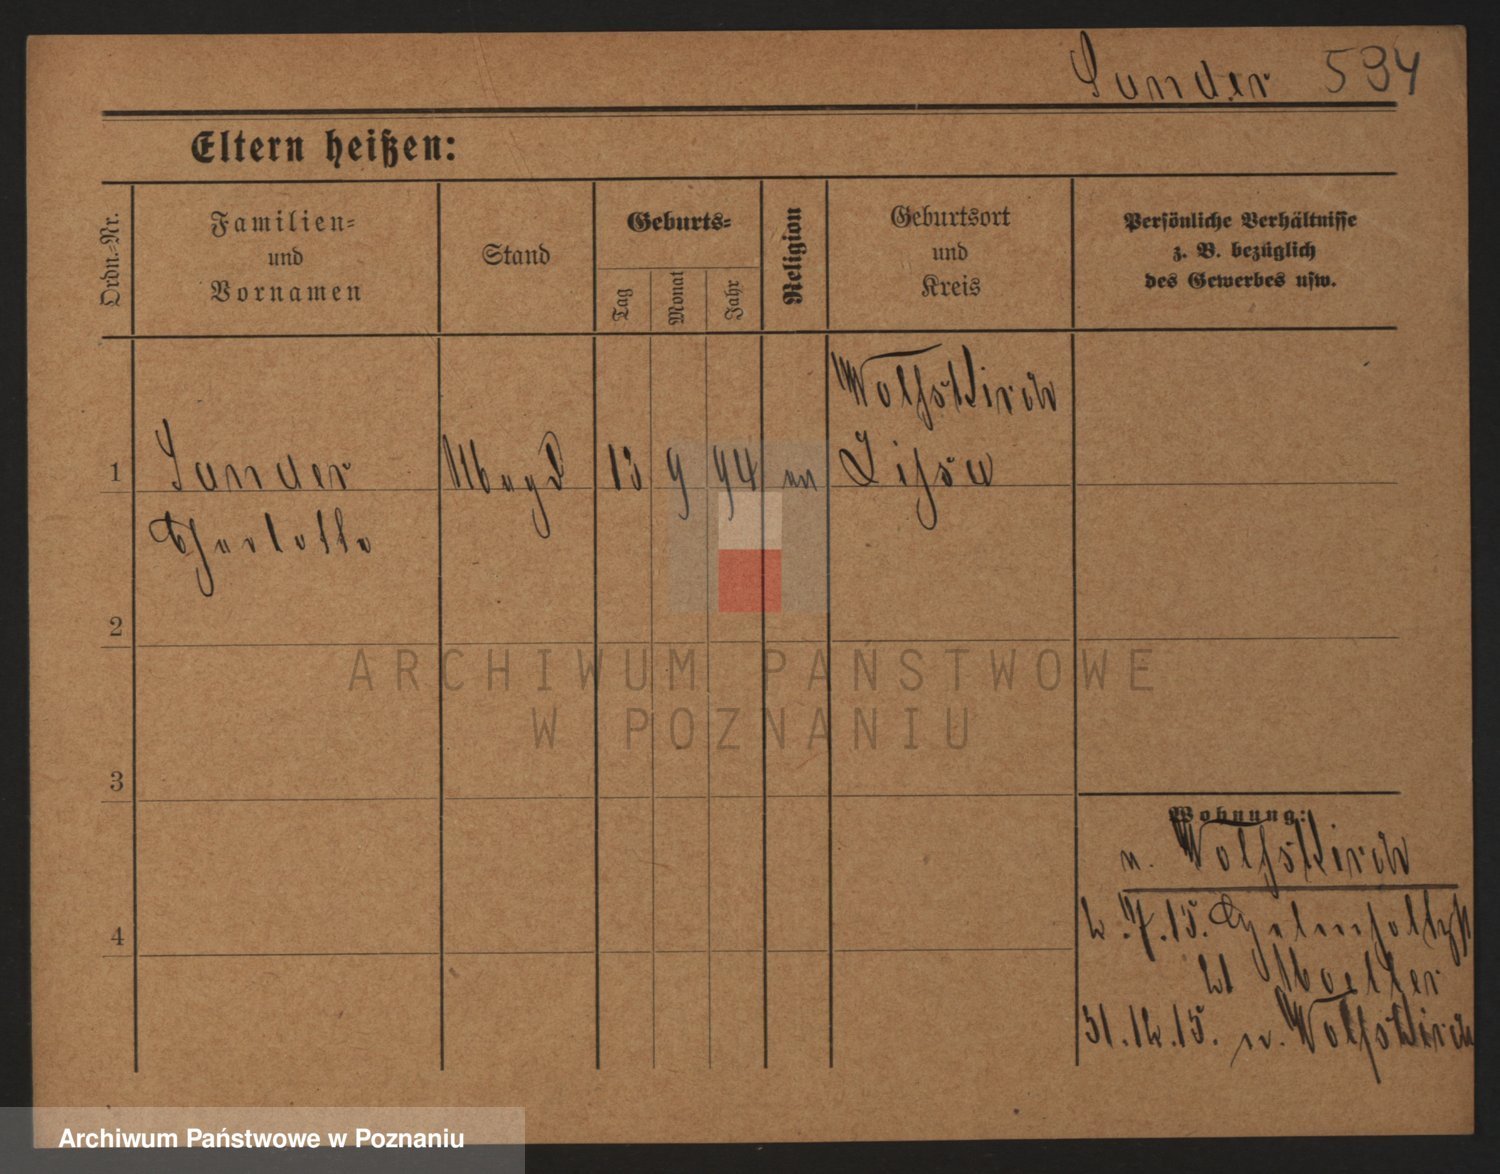 Sander 594
Eltern heißen:
Ordn.-Nr.
Familien-
und
Vornamen
Stand
Geburts-
Tag
Monat
Jahr
Religion
Geburtsort
und
Kreis
Persönliche Verhältnisse
z. B. bezüglich
des Gewerbes usw.
1
Sander
Charlotte
Magd
13
9
94
Wolfskirch
Lissa
2
3
4
Wohnung:
n. Wolfskirch
2.7.15.
21 Moeller
31.12.15. n. Wolfskirch
ARCHIWUM PAŃSTWOWE
W POZNANIU
Archiwum Państwowe w Poznaniu